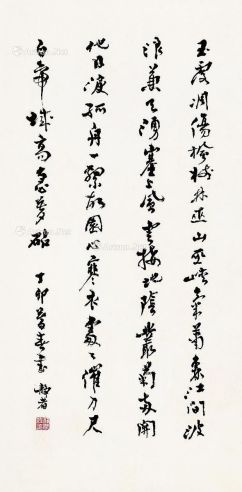 玉露凋傷楓樹林巫山巫峽氣蕭森江間波
浪兼天湧塞上風雲接地陰叢菊兩開
他日淚孤舟一繫故園心寒衣處處催刀尺
白帝城高急暮砧
丁卯暮春書